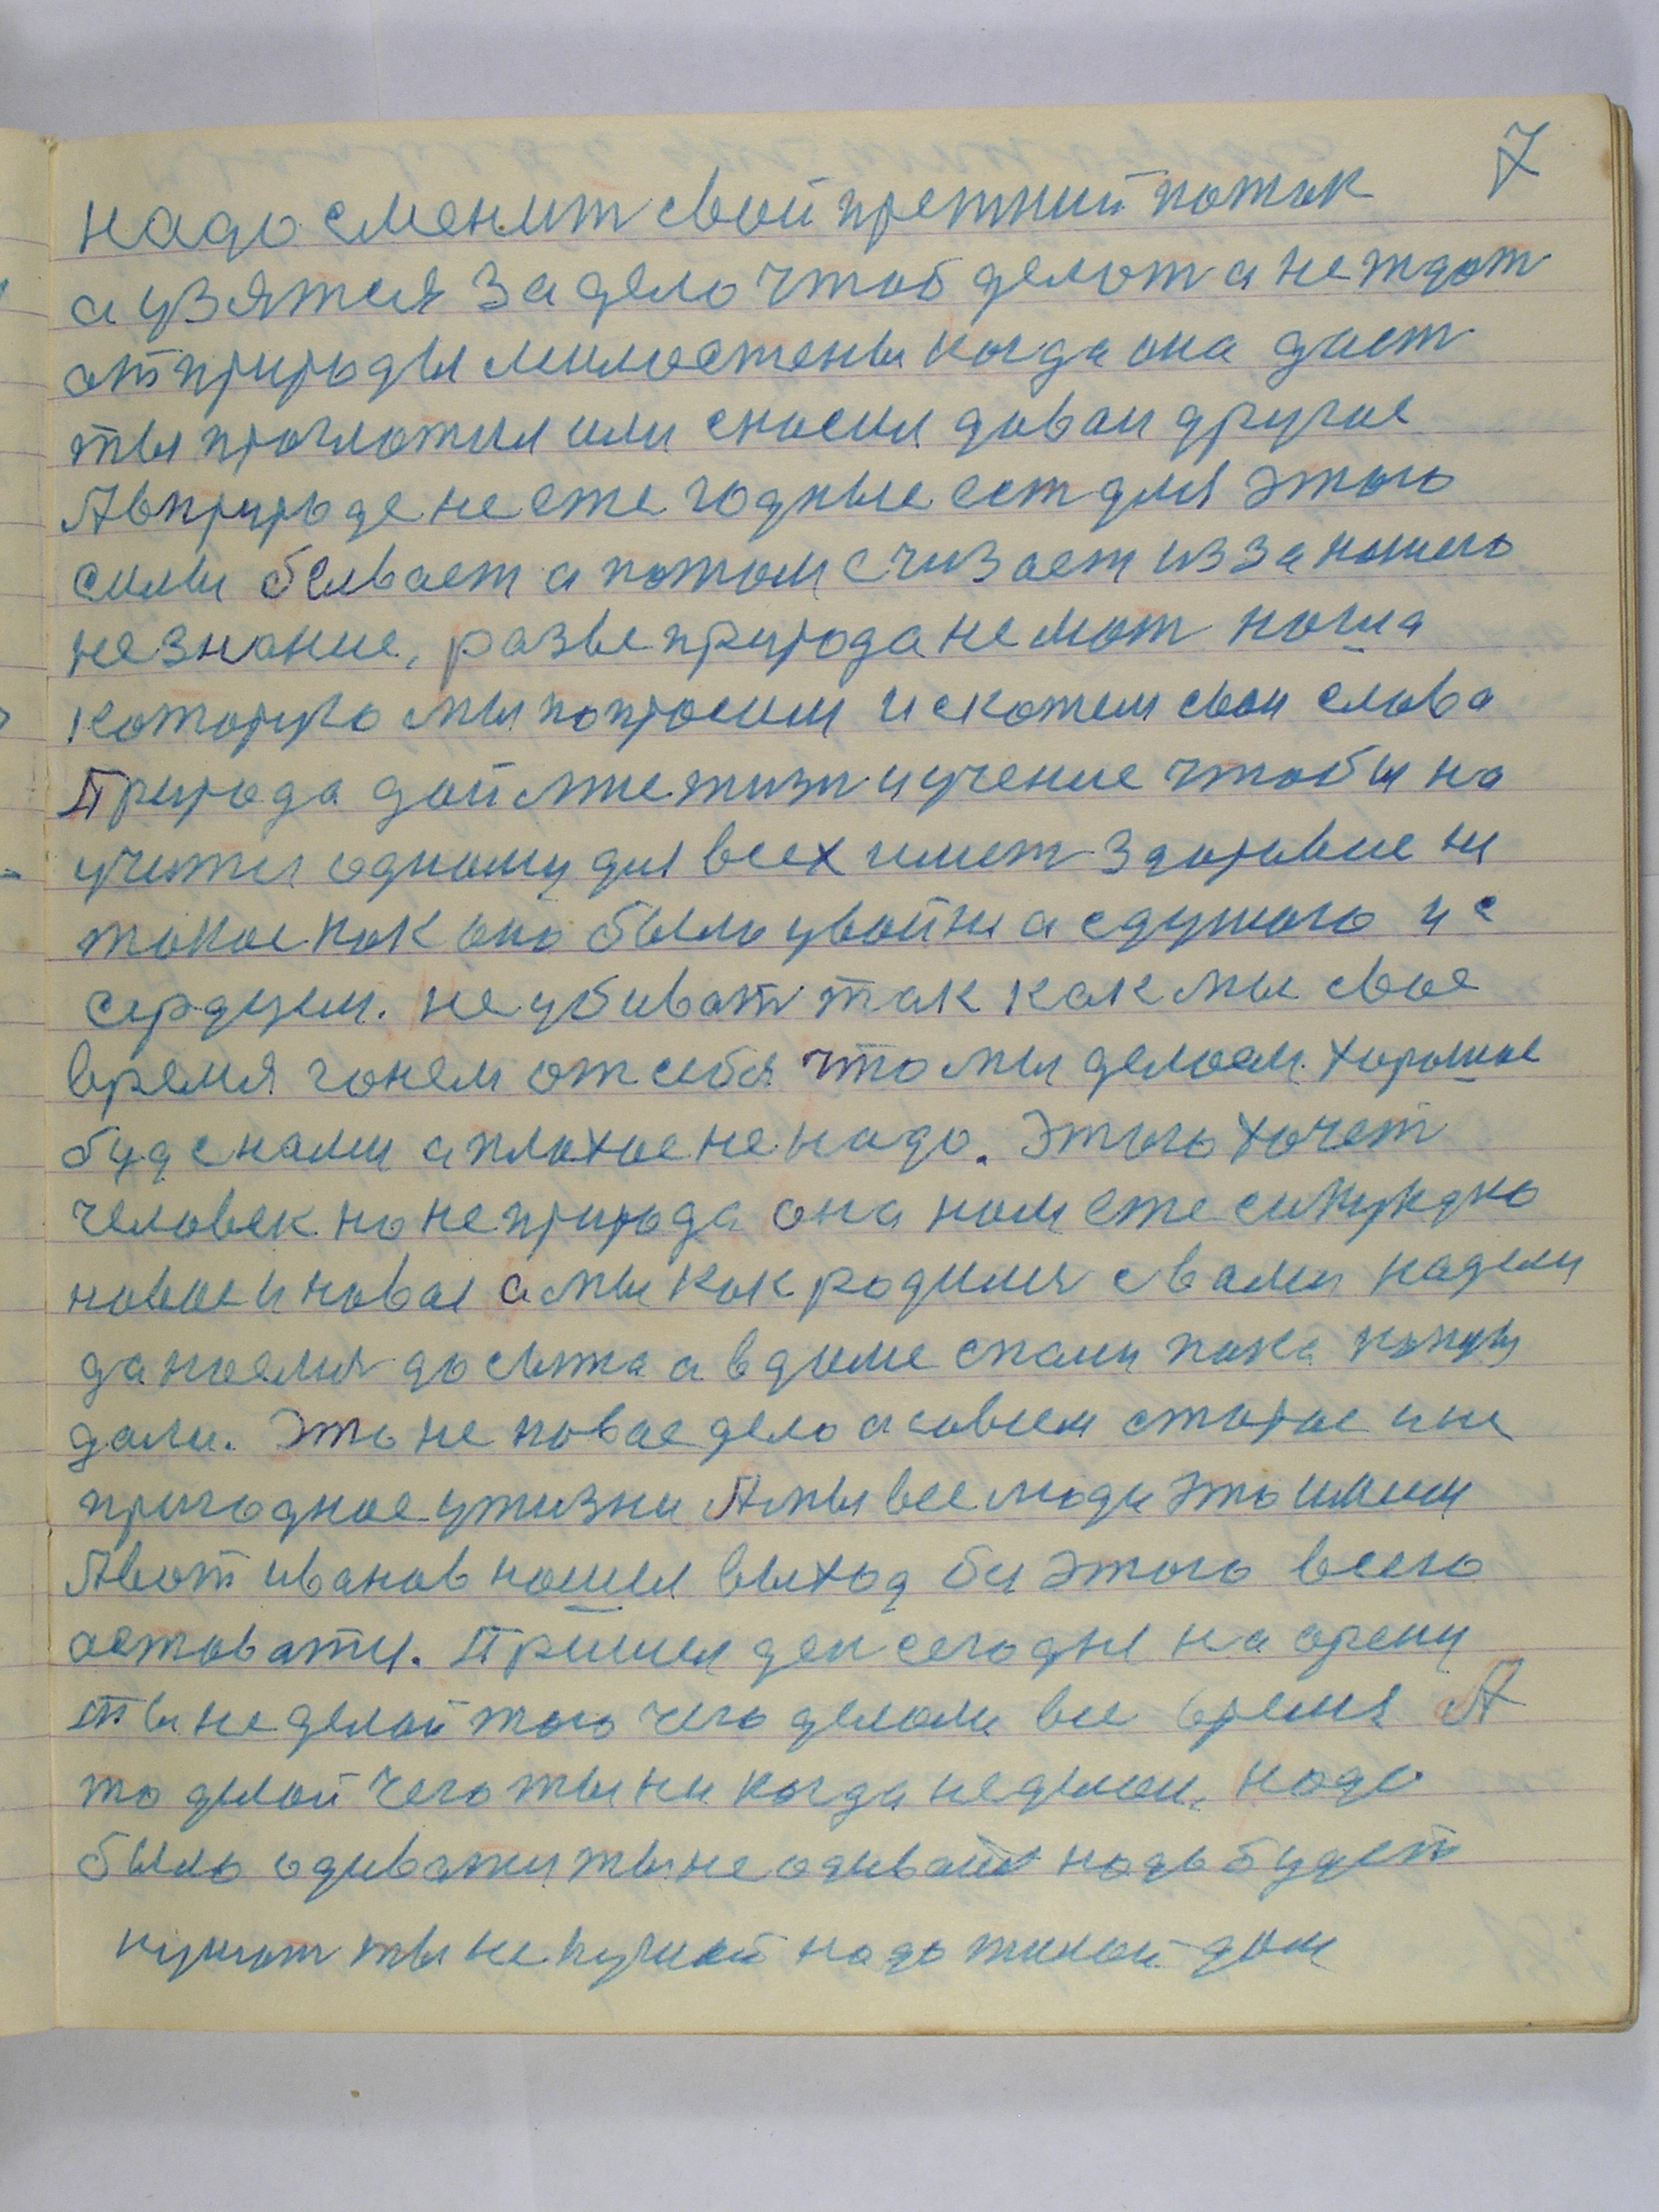 7
надо сменит свой претний поток
а узятся за дело чтоб делат а не ждат
от природы милостены когда она даст
ты проглотил или сносил даваи другое
А в природе не еже годные ест для этого
силы бывает а потом счизает из за нашего
не знание, разве природа не мат наша
которую мы попросим и скажем свои слова
Природа дай мне жизн и учение чтобы на
учится одному для всех имет здоровие ни
такое как оно было увойни а с душою и с
сердцем. не убиват так как мы свое
время гонем от себя что мы делаем хорошое
буд с нами а плохое не надо. Этого хочет
человек но не природа она нам еже
новое и новае а мы как родимся с вами надели
да наелися до сыта а в доме спали пока
дали. Это не новае дело а совсем старое и не
пригодное у жизни А мы все люди это имеи
А вот иванов нашел выход бы этого всего
оставатся. Пришел ден сегодне на арену
Ты не делай того чего делали все время А
то делай чего ты ни когда не делал, надо
было одиватся ты не одивайся надо будет
кушат ты не кушай надо жилой дом